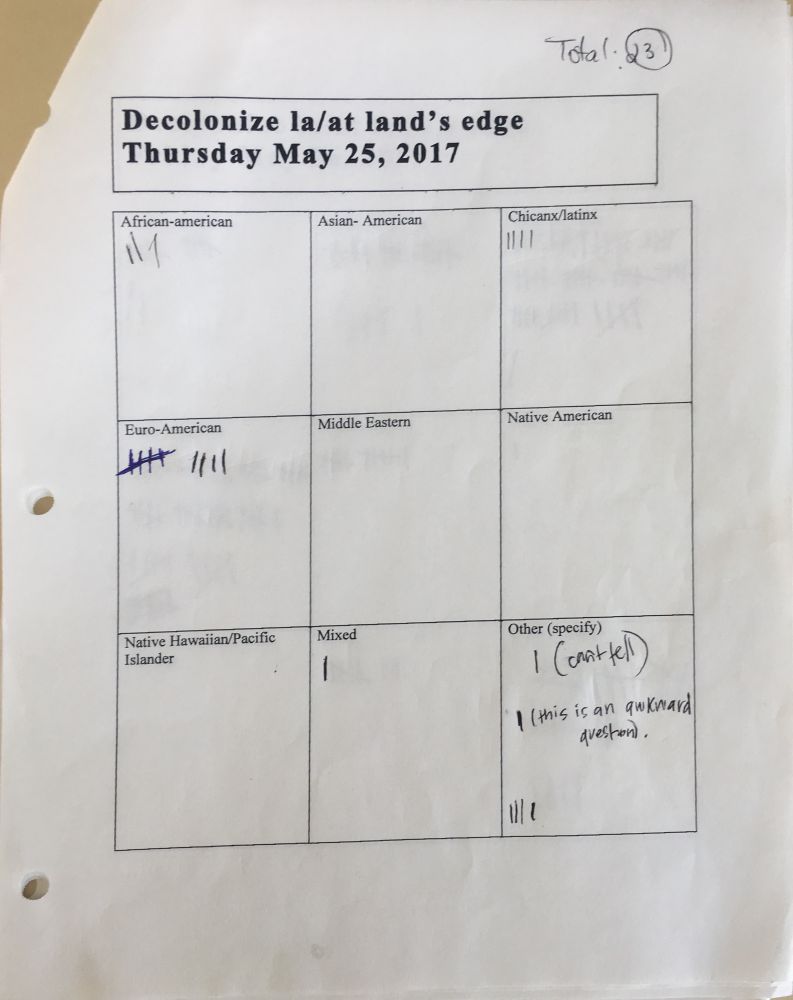 Total: 23
Decolonize la/at land's edge
Thursday May 25, 2017
African-american
Asian- American
Chicanx/latinx
||| 
||||
Euro-American
Middle Eastern
Native American
|||| ||||
Native Hawaiian/Pacific
Islander
Mixed
Other (specify)
|
| (can't tell)
| (this is an awkward
question).
||||